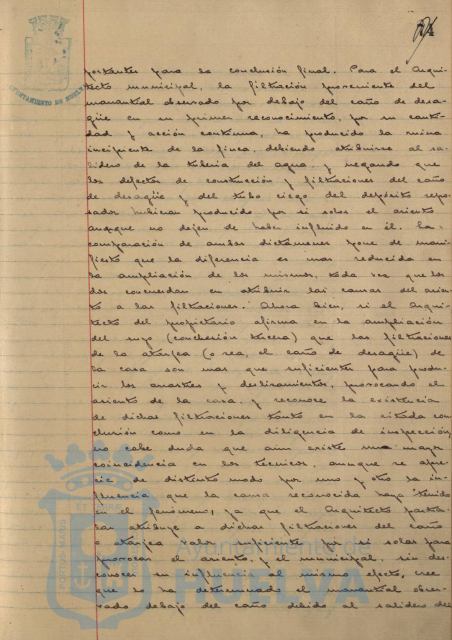 AYUNTAMIENTO DE HUELVA
portantes para la conclusión final. Para el Arqui-
tecto municipal, la filtración proveniente del
manantial observado por debajo del caño de desa-
güe en su primer reconocimiento, por su canti-
dad y acción continua, ha producido la ruina
incipiente de la finca, debiendo atribuirse al sa-
lidero de la tubería del agua, y negando que
los defectos de construcción y filtraciones del caño
de desagüe y del tubo ciego del depósito repo-
sador hubieran producido por si solos el asiento
aunque no dejen de haber influido en él. La
comparación de ambos dictámenes pone de mani-
fiesto que la diferencia es mas reducida en
la ampliación de los mismos, toda vez que los
dos concuerdan en atribuir las causas del asien-
to a las filtraciones. Ahora bien, si el Arqui-
tecto del propietario afirma en la ampliación
del suyo (conclusión tercera) que las filtraciones
de la atarjea (o sea, el caño de desagüe) de
la casa son mas que suficientes para produ-
cir los arrastres y deslizamientos, provocando el
asiento de la casa, y reconoce la existencia
de dichas filtraciones tanto en la citada con-
clusión como en la diligencia de inspección,
no cabe duda que aun existe una mayor
coincidencia en los técnicos, aunque se apre-
cie de distinto modo por uno y otro la in-
fluencia que la causa reconocida haya tenido
en el fenómeno, ya que el Arquitecto particu-
lar atribuye a dichas filtraciones del caño
o atarjea valor suficiente por si solas para
provocar el asiento, y el municipal, sin des-
conocer su influencia al mismo efecto, cree
que lo ha determinado el manantial obser-
vado debajo del caño debido al salidero del
Ayuntamiento de
HUELVA